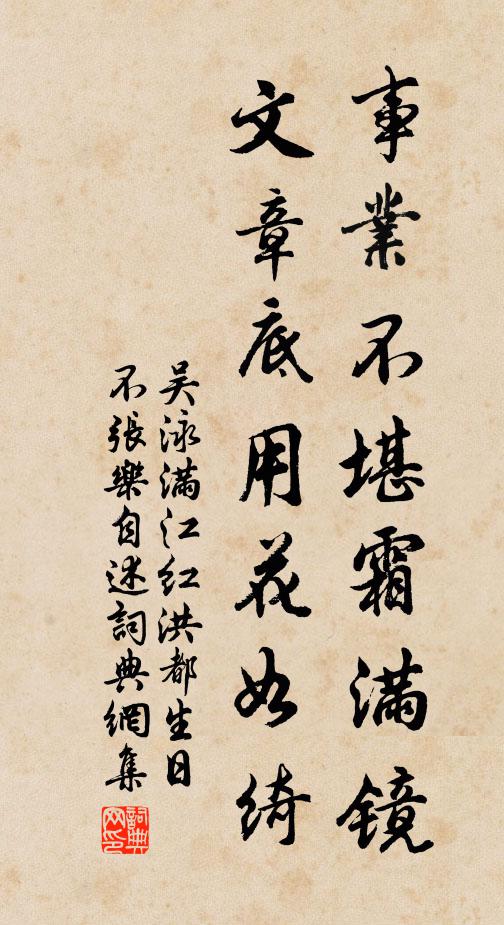 事業不堪霜滿鏡
文章底用花如綺
吳泳滿江紅洪都生日
不張樂自述詞典網集
詞典网印